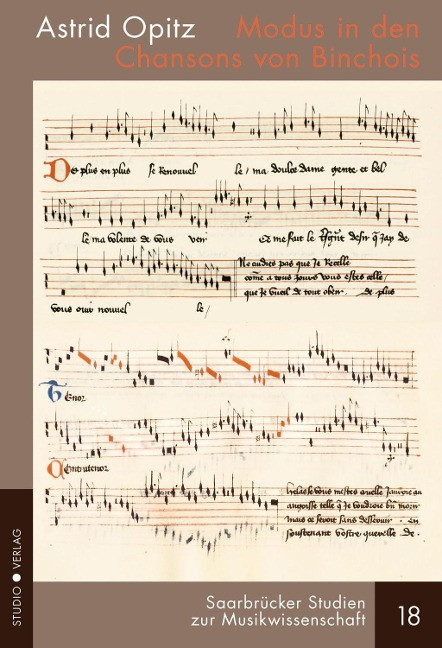 Astrid Opitz
Modus in den
Chansons von Binchois
De plus en plus se renouvel le / ma doulce dame gente et bel
le ma volente de vous veir Ce me fait le desir q jay de
vous ouir nouvel le /
Ne cuidies pas que je recelle
come a tous jours vous estes celle
que je vueil de tout obeir. de plus
Tenor
Contratenor
helas se vous mestes cruelle
angoisse telle q je voudroie
mais ce seroit sans desservir en
soustenant vostre querelle de
STUDIO VERLAG
Saarbrücker Studien
zur Musikwissenschaft
18